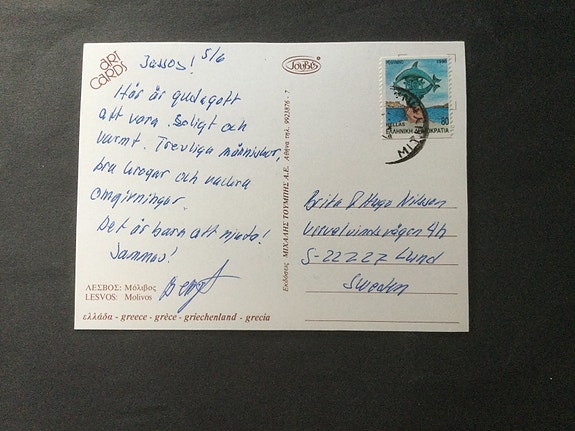 ART CARDS
Jassos! 5/6
Här är gudagott
att vara. Soligt och
varmt. Trevliga människor,
bra krogar och vackra
omgivningar.
Det är bara att njuta!
Jammas!
Bengt
ΛΕΣΒΟΣ: Μόλιβος
LESVOS: Molivos
ελλάδα - greece - grèce - griechenland - grecia
JOUBIS
Εκδόσεις ΜΙΧΑΛΗΣ ΤΟΥΜΠΗΣ Α.Ε. Αθήνα τηλ. 9923876 - 7
80
HELLAS
ΕΛΛΗΝΙΚΗ ΔΗΜΟΚΡΑΤΙΑ
Brita & Hugo Nilsson
Vervelvindsvägen 4h
S-22227 Lund
Sweden